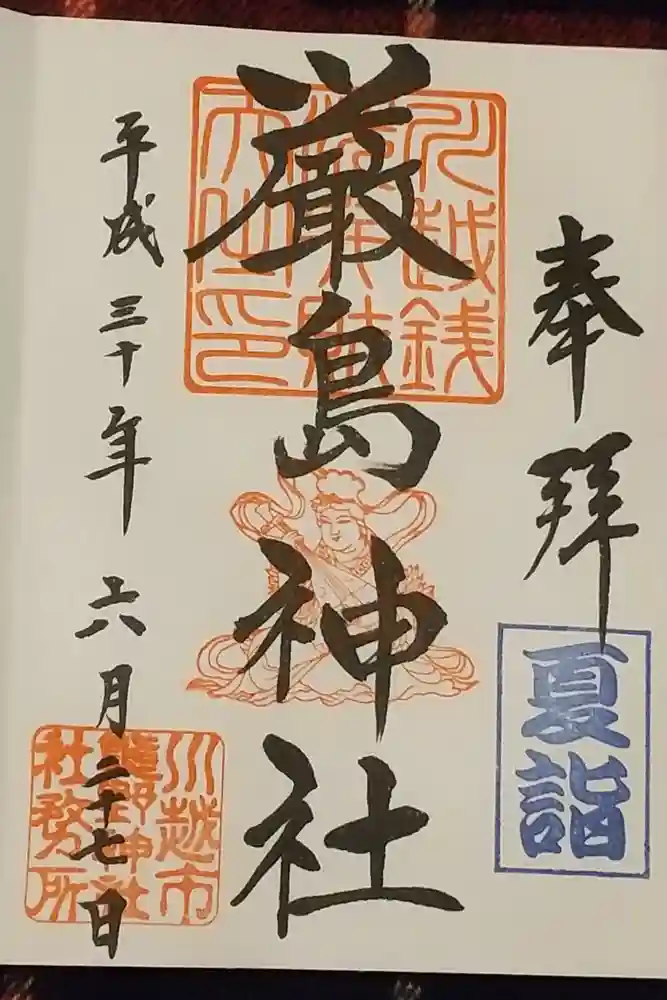 奉拝
夏詣
川越銭
洗弁財
天之印
厳島神社
平成三十年六月二十七日
川越市
熊野神社
社務所